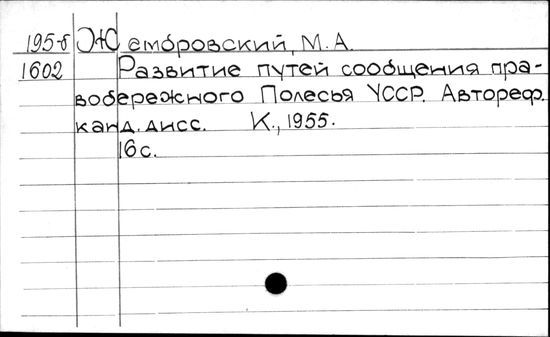 195-б Жембровский, М.А.
1602 Развитие путей сообщения пра-
вобережного Полесья УССР. Автореф.
канд. дисс. К., 1955.
16 с.